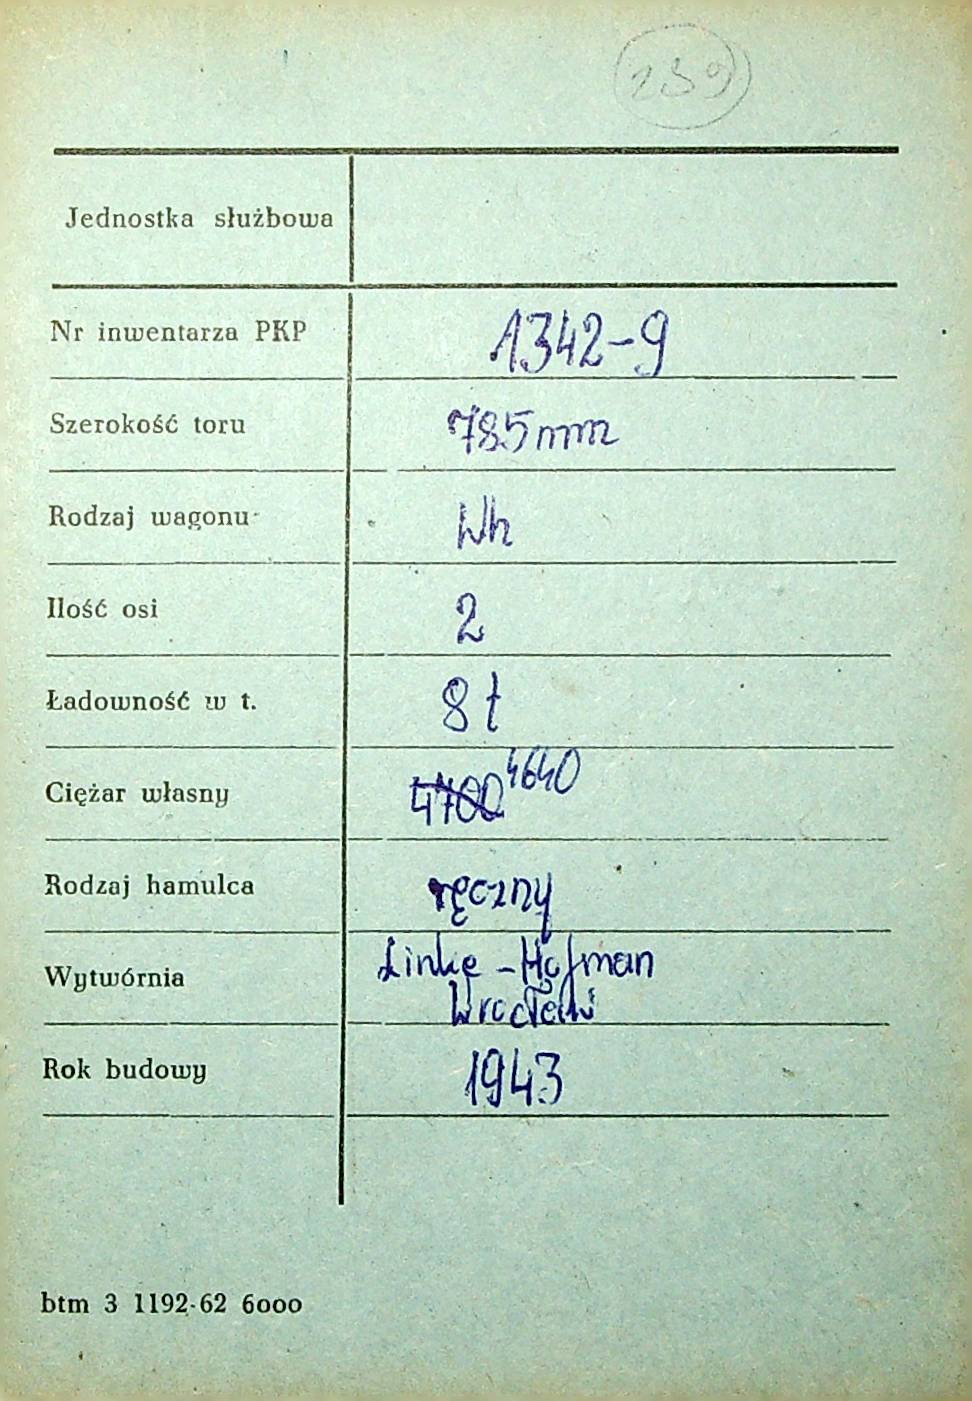 139
Jednostka służbowa
Nr inwentarza PKP 1342-9
Szerokość toru 785mm
Rodzaj wagonu Wh
Ilość osi 2
Ładowność w t. 8t
Ciężar własny 4700 4640
Rodzaj hamulca ręczny
Wytwórnia Linke-Hofman
Wrocław
Rok budowy 1943
btm 3 1192-62 6000